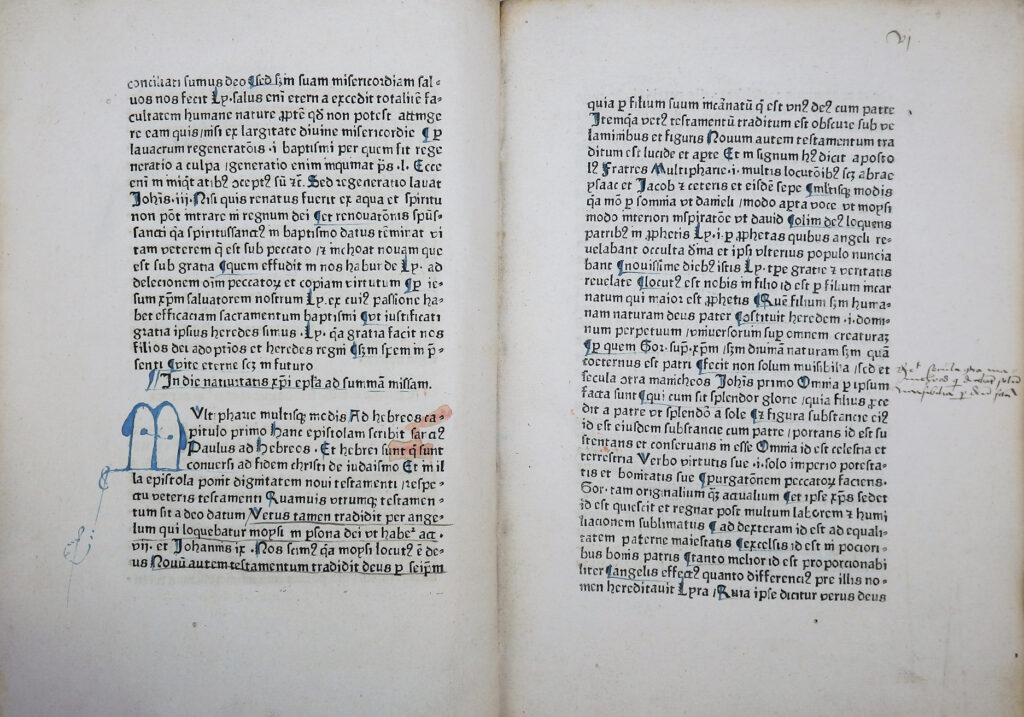 conciliati sumus deo ¶sed ẜm suam misericordiam sal⸗
uos nos fecit Ly. salus eni̅ eterna excedit totalit̅e fa⸗
cultatem humane nature ꝓpt̅e qd̅ non potest attinge
re eam quis/nisi ex largitate diuine misericordie ¶ꝑ
lauacrum regenerato̅is .i. baptismi per quem fit rege
neratio a culpa /generatio enim inquinat ps̅. l. Ecce
eni̅ in iniqt̅atibꝰ ↄceptꝰ su̅ ⁊c̅. Sed regeneratio lauat
Joh̅is. iij. Nisi quis renatus fuerit ex aqua et spiritu
non po̅t intrare in regnum dei ¶et renouato̅nis spu̅s⸗
sancti q̅a spiritussanctꝰ in baptismo datus te̅mirat vi
tam veterem q̅ est sub peccato /⁊ inchoat nouam que
est sub gratia ¶quem effudit in nos habu̅de Ly. ad
delectionem oi̅m peccatoꝝ et copiam virtutum ¶ꝑ ie⸗
sum xp̅m saluatorem nostrum Ly. ex cuiꝰ passione ha⸗
bet efficaciam sacramentum baptismi ¶vt iustificati
gratia ipsius heredes simus. Ly. q̅a gratia facit nos
filios dei adoptio̅s et heredes regni ¶ẜm sꝑem in p̅⸗
senti ¶vite eterne scꝫ in futuro
In die natiuitatis xp̅i ep̅la ad summa̅ missam.
MVlti pharie multisqꝫ modis Ad hebreos ca⸗
pitulo primo Hanc epistolam scribit sa̅ctꝰ
Paulus ad hebreos. Et hebrei sunt q̅ sunt
conuersi ad fidem christi de iudaismo Et in il
la epistola ponit dignitatem noui testamenti /respe⸗
ctu veteris testamenti Quamuis vtrumqꝫ testamen⸗
tum sit a deo datum /Vetus tamen tradidit per ange⸗
lum qui loquebatur moysi in ꝑsona dei vt habeꝰ act.
vij. et Johannis ix. Nos scimꝰ q̅a moysi locutꝰ e̅ de⸗
us Nouu̅ autem testamentum tradidit deus ꝑ seip̅m
vj
quia ꝑ filium suum inca̅natu̅ q̅ est vnꝰ deꝰ cum patre
Jtem q̅a vetꝰ testamentu̅ traditum est obscure sub ve
laminibus et figuris Nouum autem testamentum tra
ditum est lucide et aꝑte Et in signum hꝰ dicit aposto
lꝰ Fratres Multiphariẽ .i. multis locuto̅ibꝰ scꝫ abrae
ysaac et Jacob ⁊ ceteris et eisde̅ sepe ¶multisqꝫ modis
q̅a mo̅ ꝑ somnia vt danieli /modo aꝑta voce vt moysi
modo interiori inspirato̅e vt dauid ¶olim deꝰ loquens
patribꝰ in ꝓphetis Ly. i. ꝑ ꝓphetas quibus angeli re⸗
uelabant occulta di̅na et ipsi vlterius populo nuncia
bant ¶nouissime diebꝰ istis Ly. tp̅e gratie ⁊ veritatis
reuelate ¶locutꝰ est nobis in filio id est ꝑ filium incar
natum qui maior est ꝓphetis ¶Que̅ filium ẜm huma⸗
nam naturam deus pater ¶ↄstituit heredem .i. domi⸗
num perpetuum /vniuersorum suꝑ omnem creaturaꝫ
¶ꝑ quem Gor. sup̅. xp̅m /ẜm diuina̅ naturam ẜm qua̅
coeternus est patri ¶fecit non solum inuisibilia /sed et
secula ↄtra manicheos Joh̅is primo Omnia ꝑ ipsum
facta sunt ¶qui cum sit splendor glorie /quia filius ꝓce
dit a patre vt splendo̅ a sole ¶⁊ figura substantie eiꝰ
id est eiusdem substantie cum patre /portans id est su
stentans et conseruans in esse Omnia id est celestia et
terrestria Verbo virtutis sue .i. solo imperio potesta⸗
tis et bonitatis sue ¶purgato̅nem peccatoꝝ faciens.
Gor. tam originalium qꝫ actualium ¶et ipse xp̅s sedet
id est quiescit et regnat post multum laborem ⁊ humi
liacionem sublimatus ¶ad dexteram id est ad equali⸗
tatem paterne maiestatis ¶excelsis id est in pociori⸗
bus bonis patris ¶tanto melior id est proporcionabi
liter ¶angelis effectꝰ quanto differenciꝰ pre illis no⸗
men hereditauit Lyra /Quia ipse dicitur verus deus